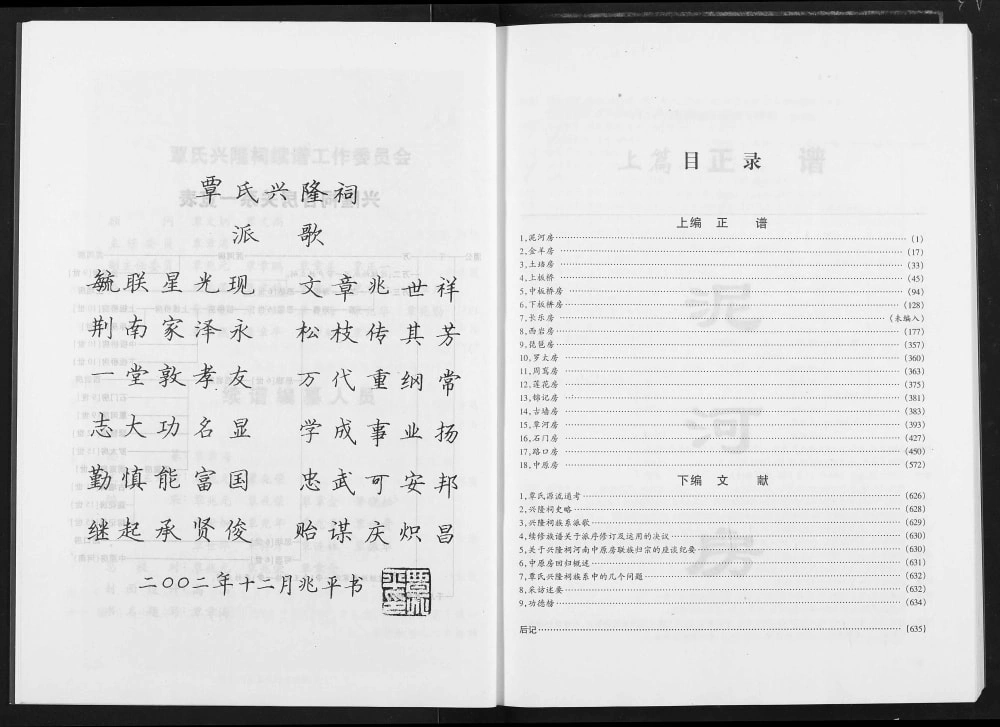 覃氏兴隆祠
派 歌
毓联星光现 文章兆世祥
荆南家泽永 松枝传其芳
一堂敦孝友 万代重纲常
志大功名显 学成事业扬
勤慎能富国 忠武可安邦
继起承贤俊 贻谋庆炽昌
二〇〇二年十二月兆平书
目 录
上编 正 谱
1,泥河房 (1)
2,金羊房 (17)
3,土墙房 (33)
4,上板桥 (45)
5,中板桥房 (94)
6,下板桥房 (128)
7,长乐房 (未编入)
8,西岩房 (177)
9,琵琶房 (357)
10,罗太房 (360)
11,周嵩房 (363)
12,莲花房 (375)
13,锦记房 (381)
14,古墙房 (383)
15,覃河房 (393)
16,石门房 (427)
17,路口房 (450)
18,中原房 (572)
下编 文 献
1,覃氏源流通考 (626)
2,兴隆祠史略 (628)
3,兴隆祠族系派歌 (629)
4,续修族谱关于派序修订及运用的决议 (630)
5,关于兴隆祠河南中原房联族归宗的座谈纪要 (630)
6,中原房回归概述 (631)
7,覃氏兴隆祠族系中的几个问题 (632)
8,采访述要 (632)
9,功德榜 (634)
后记 (635)